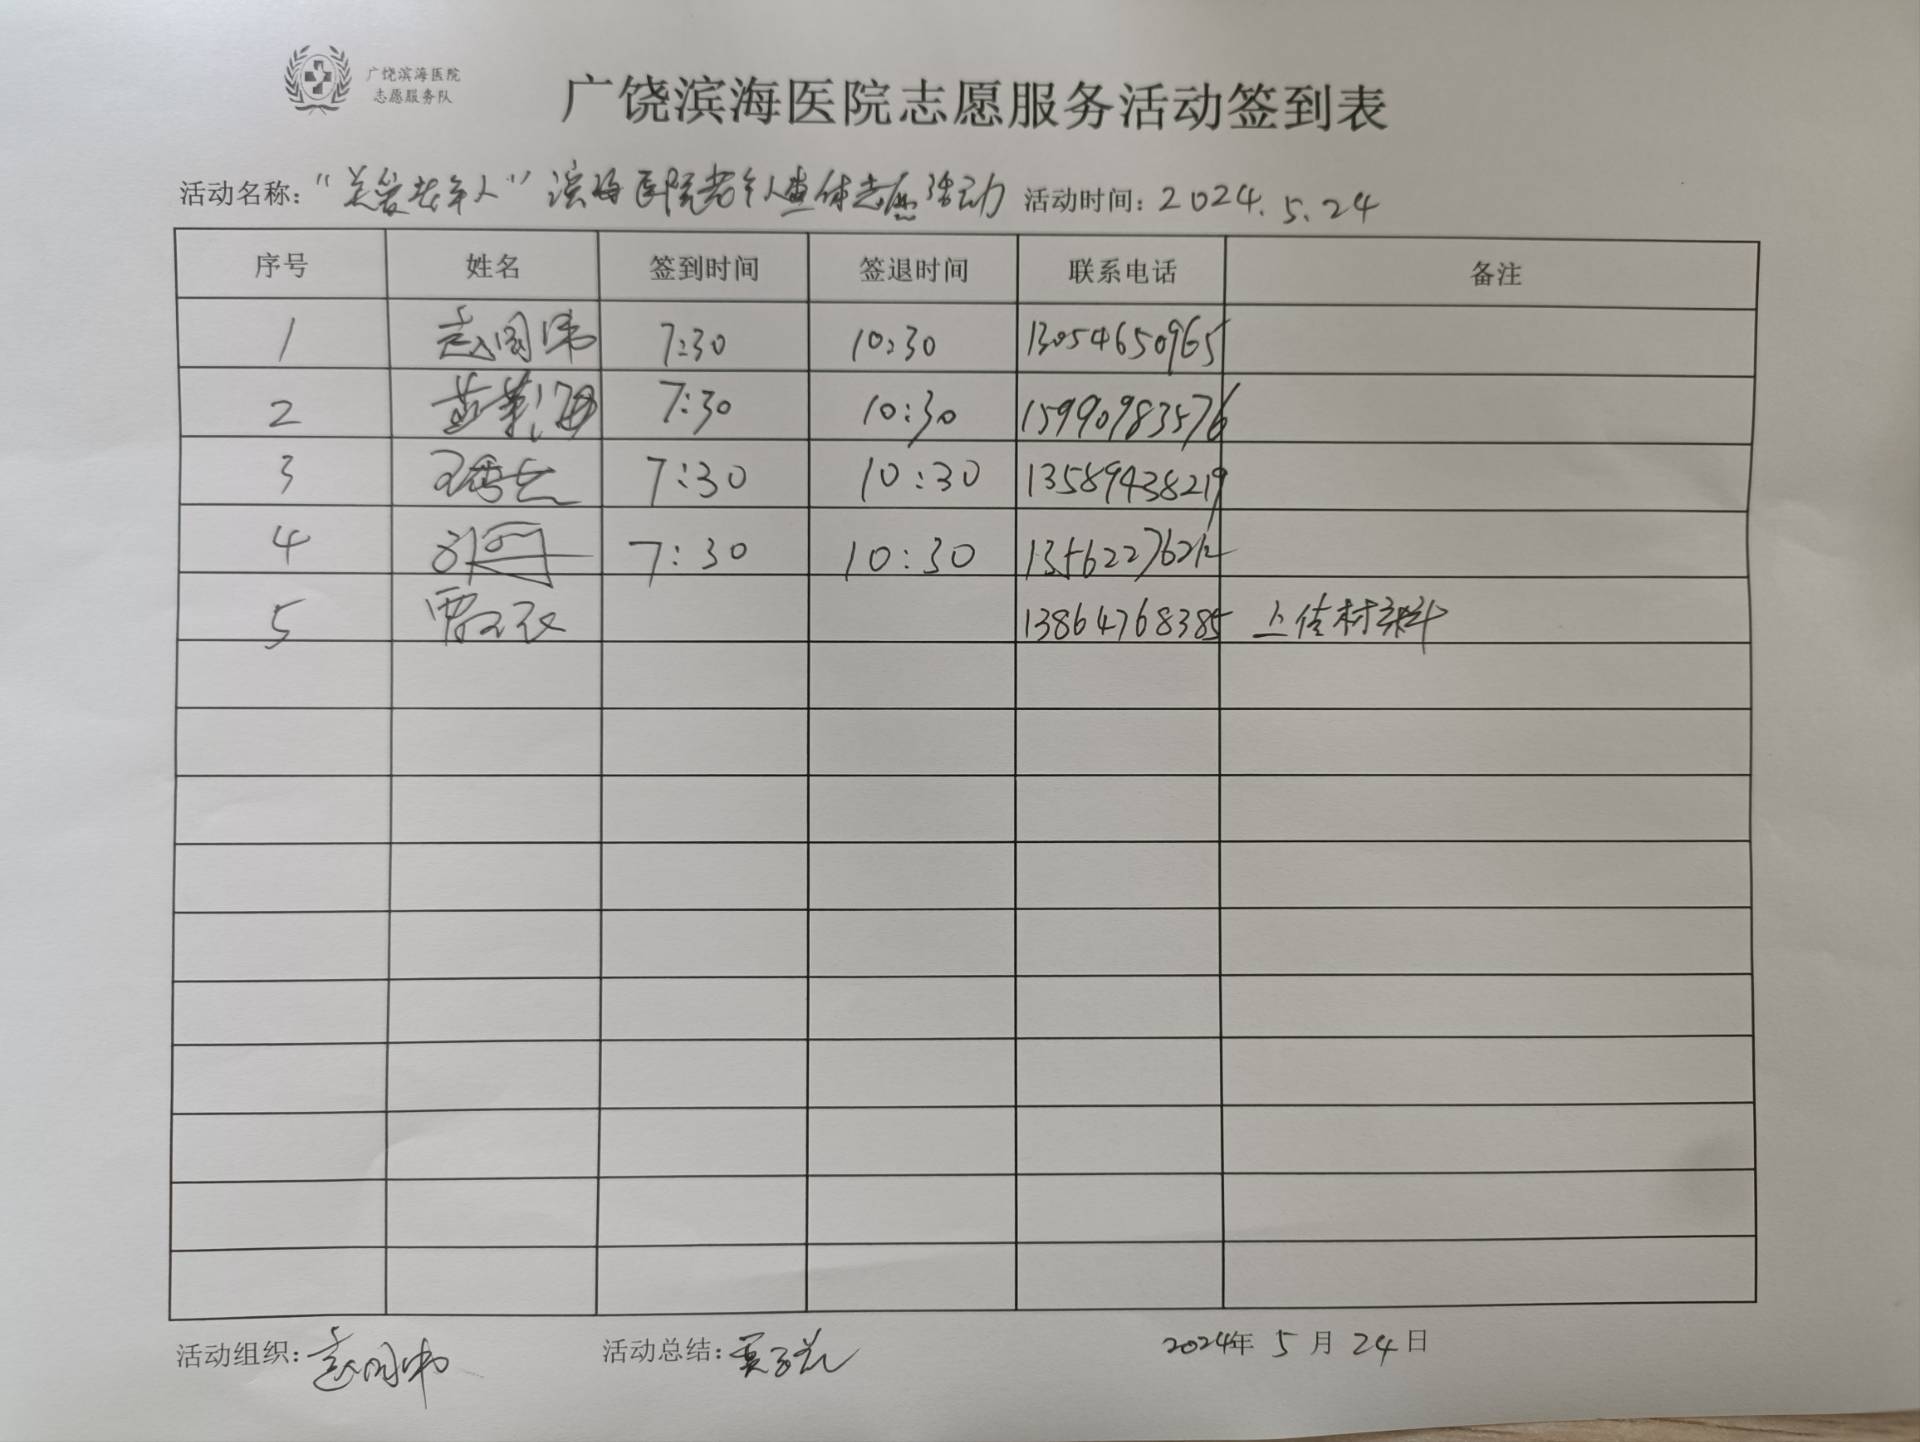 广饶滨海医院
志愿服务队
广饶滨海医院志愿服务活动签到表
活动名称："关爱老年人"滨海医院老年人查体志愿活动 活动时间：2024.5.24
序号 姓名 签到时间 签退时间 联系电话 备注
1 赵国伟 7:30 10:30 13054650965
2 7:30 10:30 15990983576
3 7:30 10:30 13589438219
4 7:30 10:30 13562276212
5 13864768385 上传材料
活动组织：赵国伟 活动总结： 2024年 5 月 24 日